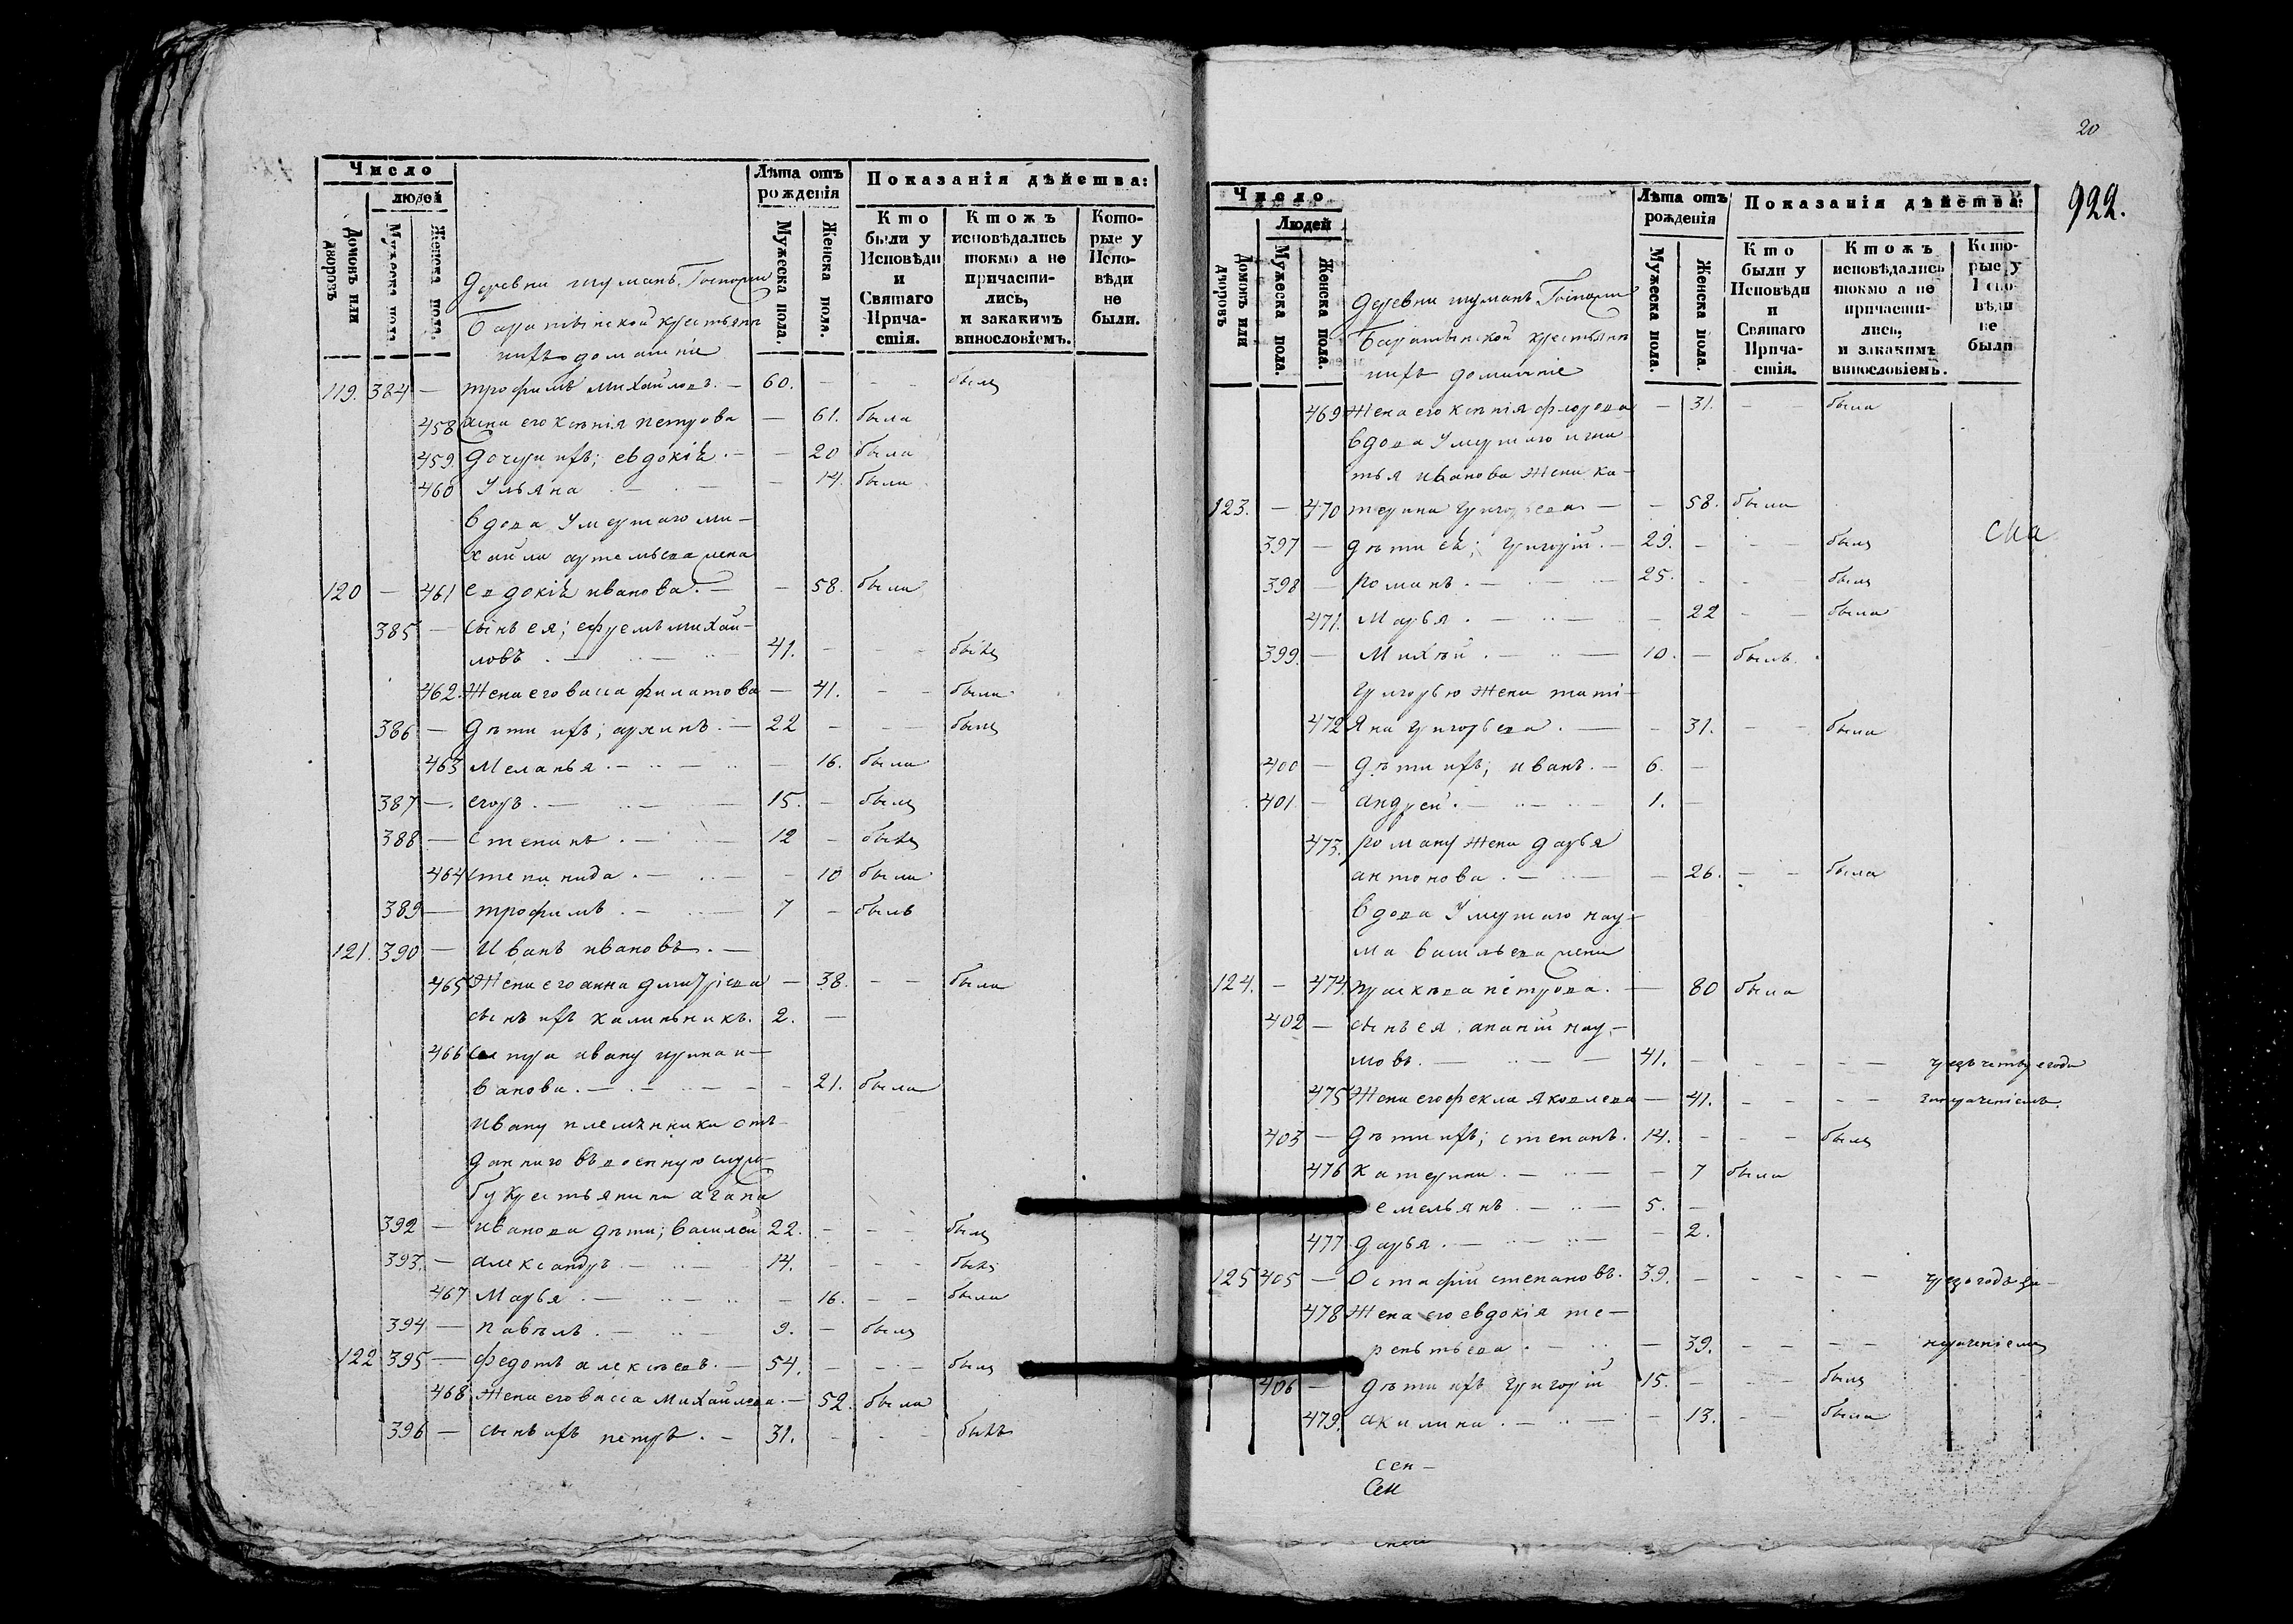 Число
людей
Домовъ или дворовъ
Мужеска пола
Женска пола.
Лѣта отъ рожденія
Мужеска пола.
Женска пола.
Показанія дѣйства:
Кто были у Исповѣди и Святаго Прича- стія.
Ктожъ исповѣдались токмо а не причасти- лись, и закакимъ винословіемъ.
Кото- рые у Испо- вѣди не были.
деревни
крестьяне
ихъ домашніе
119. 384 — трофимъ михайловъ. — 60. — — — былъ
458 жена его ксенія петрова — 61. была
459 дочери ихъ; евдокія. — — 20 была
460 Ульяна — — 14. была
вдова умершаго ми-
хаила артемьева жена
120 — 461 евдокія иванова. — — 58. была
385 — сынъ ея; ефремъ михай-
ловъ . — 41. — — — былъ
462. Жена его васса филатова — 41. — — была
386 — дѣти ихъ; архипъ. — 22 — — — былъ
463 Меланья . — — 16. была
387 — егоръ . — 15. — былъ
388 — степанъ . — 12 — былъ
464 степанида . — — 10 была
389 — трофимъ . — 7 — былъ
121. 390 — Иванъ ивановъ . —
465 Жена его анна дмитріева — 38. — — была
сынъ ихъ калинникъ. 2. —
466 ивану ирина и-
ванова . — — 21. была
ивану племянника отъ-
даннаго въ военную служ-
бу крестьянина агапа
392 — иванова дѣти; василей 22. — — — былъ
393. — александръ . — 14. — — — былъ
467 Марья . — — 16. — — была
394 — павелъ . — 9. — былъ
122 395 — федотъ алексѣевъ. — 54. — — — былъ
468 Жена его васса михайлова. — 52. была
396 — сынъ ихъ петръ . — 31. — — — былъ
20
922.
Число
Людей
Домовъ или дворовъ
Мужеска пола.
Женска пола.
Лѣта отъ рожденія
Мужеска пола.
Женска пола.
Показанія дѣйства:
Кто были у Исповѣди и Святаго Прича- стія.
Ктожъ исповѣдались токмо а не причасти- лись, и закакимъ винословіемъ.
Кото- рые у Испо- вѣди не были
деревни
крестьяне
ихъ домашніе
469 Жена его ксенія флорова — 31. — — была
вдова умершаго игна-
тья иванова жена ка-
123. — 470 терина григорьева — — 58. была
397 — дѣти ея; григорій. — 29. — — — былъ
398 — романъ . — 25. — — былъ
471. Марья . — — 22 — — была
399. — Михѣй . — 10. — былъ.
григорью жена тати-
472 яна григорьева . — — 31. — — была
400 — дѣти ихъ; иванъ. — 6. —
401 — андрей . — 1. —
473. роману жена дарья
антонова . — — 26. — — была
вдова умершаго нау-
ма васильева жена
124. — 474. праскева петрова. — 80 была
402 — сынъ ея. ананій нау-
мовъ. — 41. — — — — —
475 Жена его фекла яковлева — 41. — — — —
403 — дѣти ихъ; степанъ. 14. — — — былъ
476 Катерина . — — 7 была
емельянъ . — 5. —
477. дарья . — — 2.
125 405 — Остафій степановъ. 39. — — — — —
478 Жена его евдокія те-
рентьева . — — 39. — — — —
406 — дѣти ихъ григорій 15. — — — былъ
479. акилина . — — 13. — — была
сен-
Сен